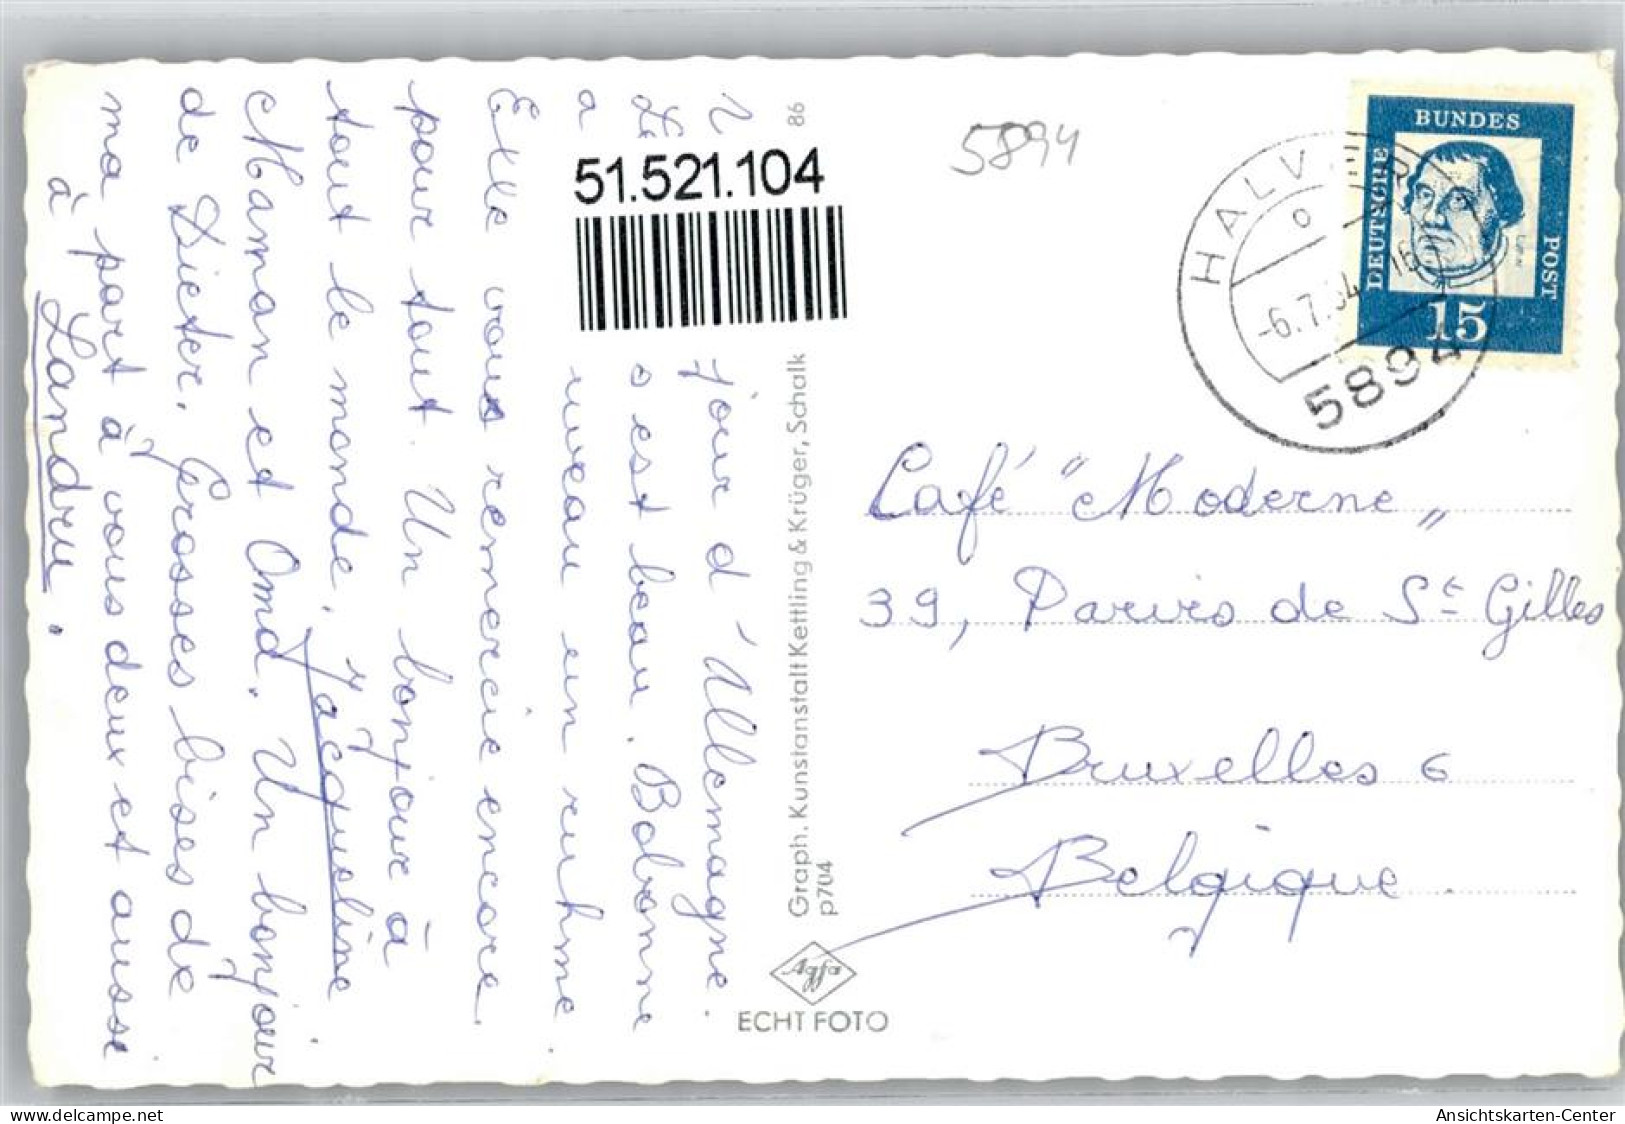 jour d'Allemagne.
est beau. Bobonne
a un ruhme
Elle vous remercie encore
pour tout. Un bonjour à
tout le monde. Jacqueline
Maman et Omd. Un bonjour
de Dieter. Grosses bises de
ma part à vous deux et aussi
à Landru.
51.521.104
86
Graph. Kunstanstalt Kettling & Krüger, Schalk
p704
Agfa
ECHT FOTO
5894
HALVER
-6.7.64
5894
DEUTSCHE
BUNDES
POST
15
Café "Moderne"
39, Parvis de St Gilles
Bruxelles 6
Belgique.
delcampe.net
Ansichtskarten-Center